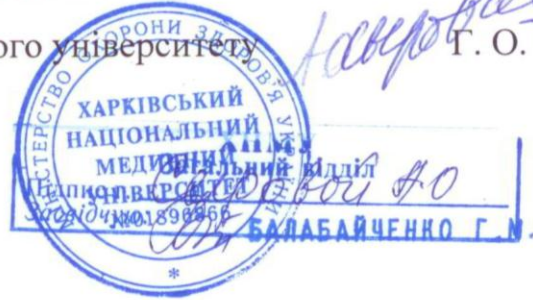 ого університету Г. О.
МІНІСТЕРСТВО ОХОРОНИ ЗДОРОВ'Я УКРАЇНИ
ХАРКІВСЬКИЙ
НАЦІОНАЛЬНИЙ
МЕДИЧНИЙ
УНІВЕРСИТЕТ
№01896866
*
ХНМУ
Загальний відділ
Підпис
Завідуюч
БАЛАБАЙЧЕНКО Г.М.